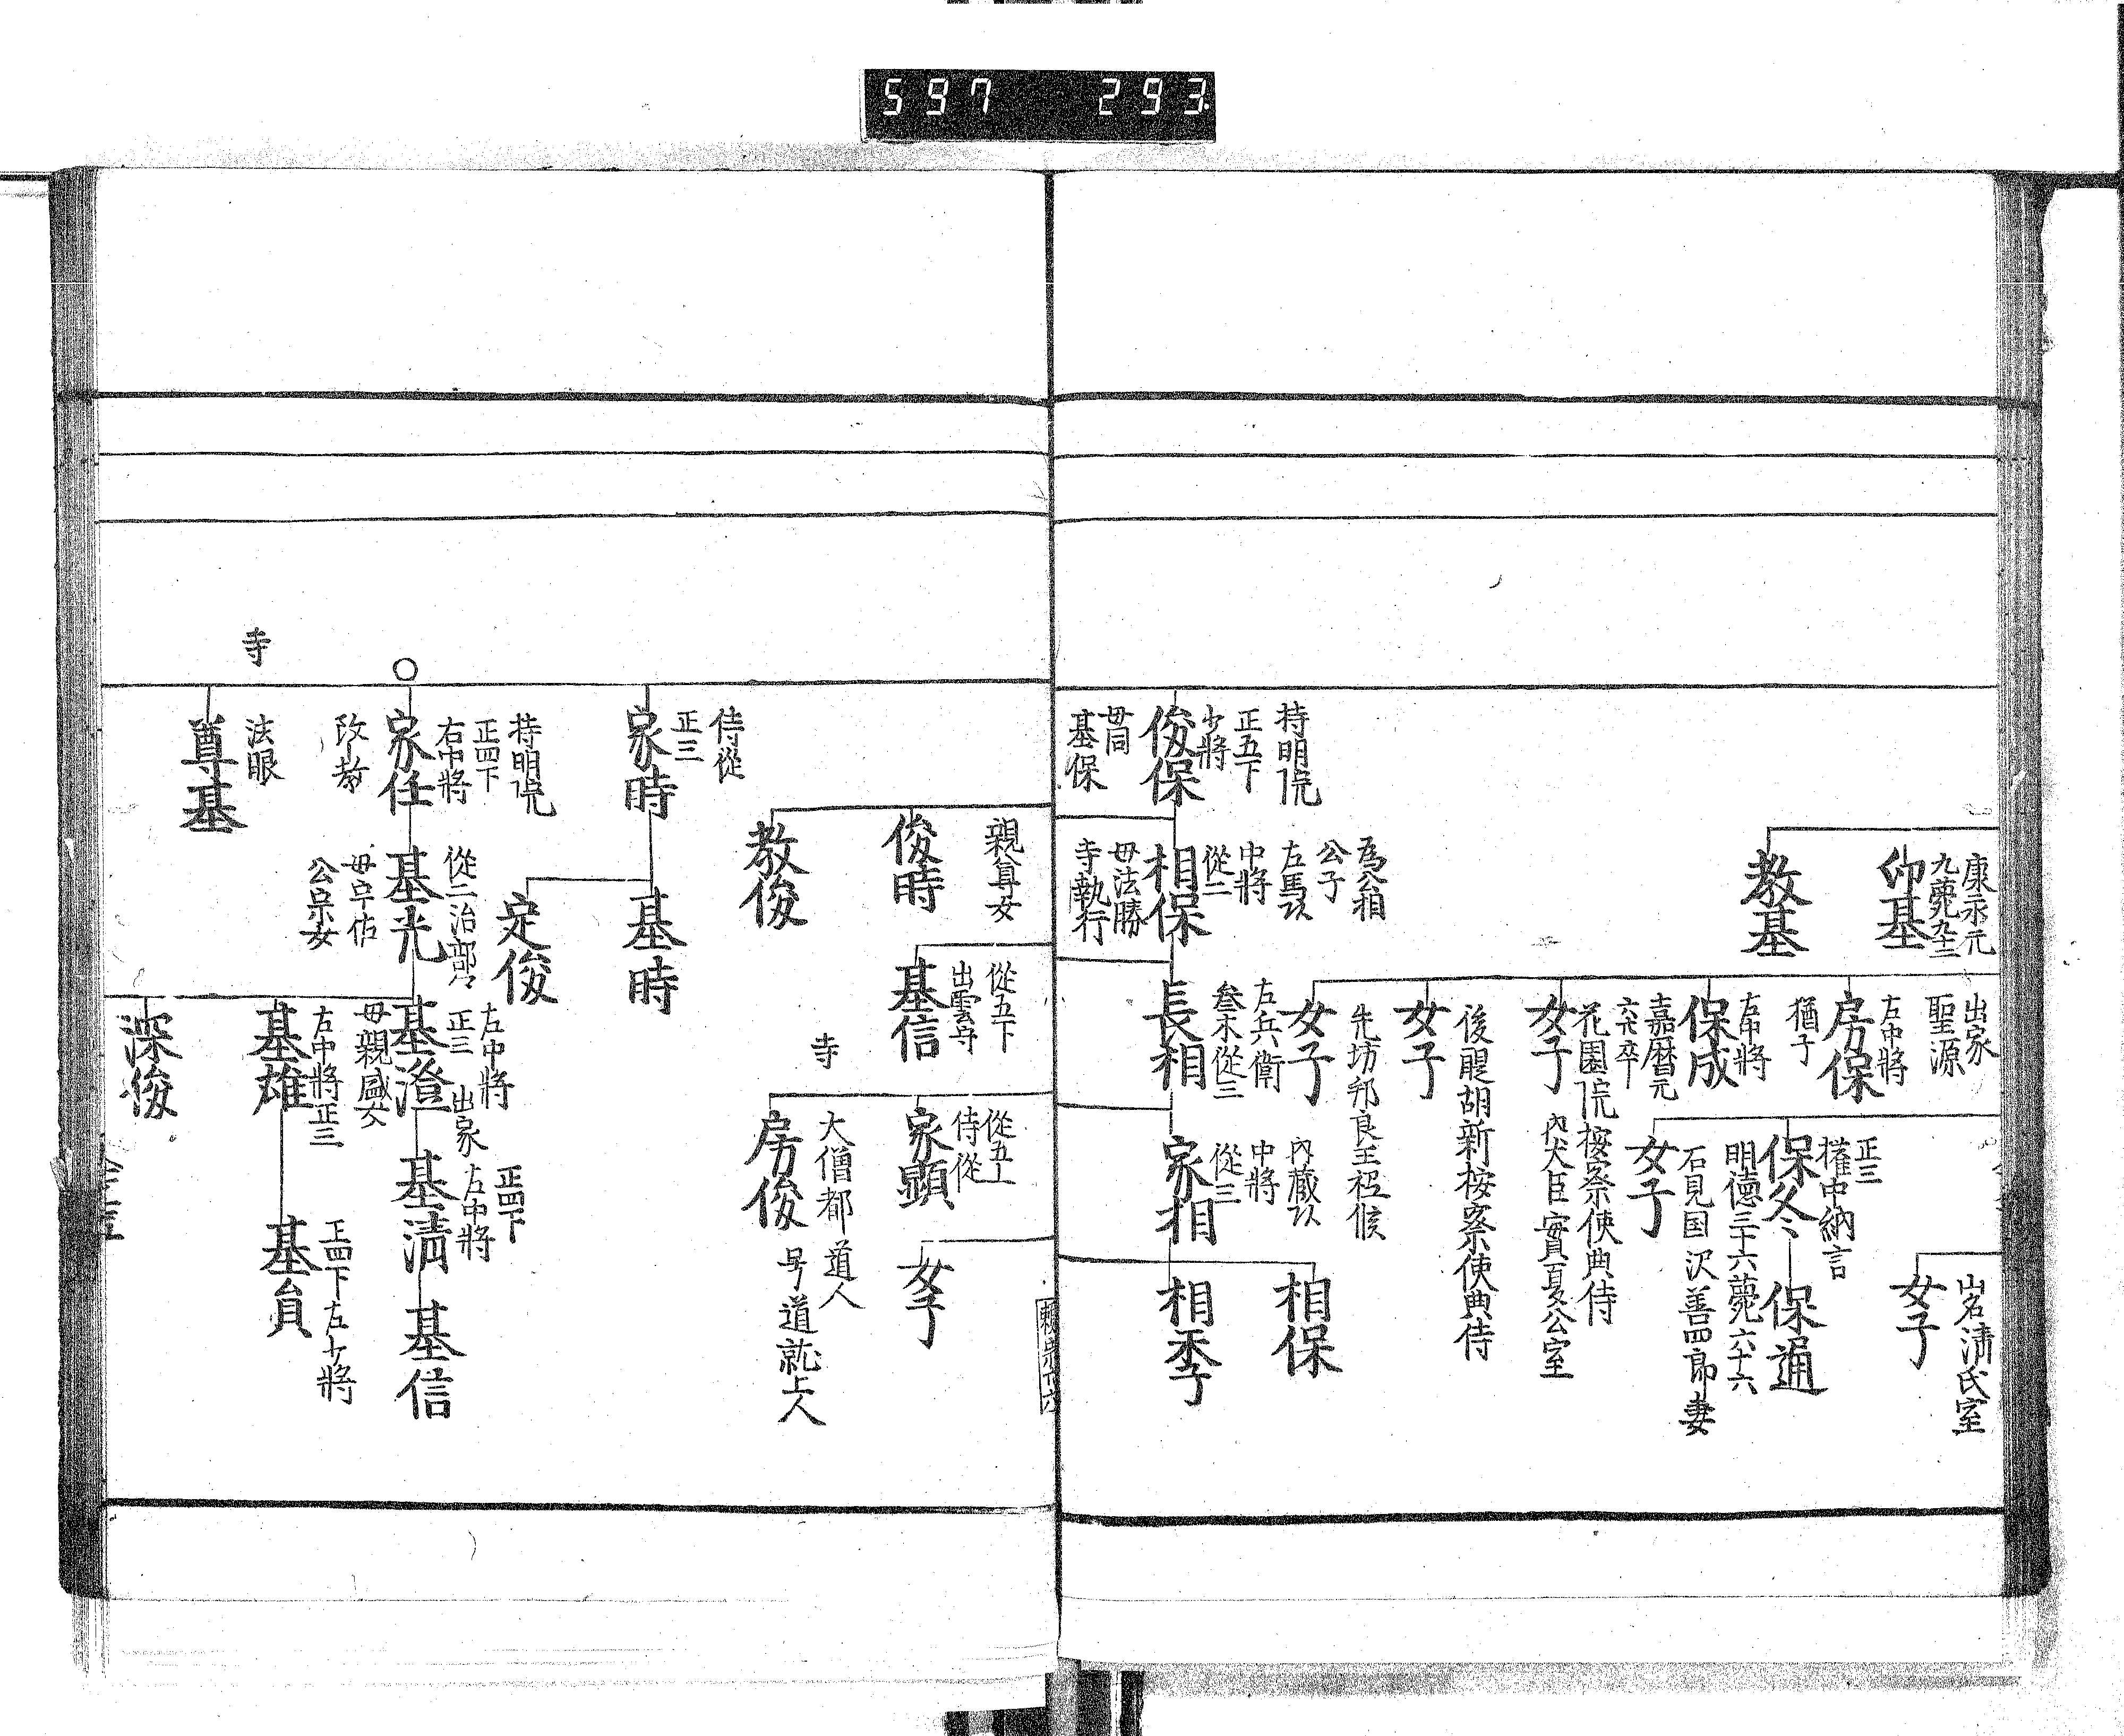 597 293
康永元
九薨九十二
仰基
教基
出家
聖源
左中將
房保
猶子
左中將
保成
嘉暦元
六卒
花園院按察使典侍
女子
内大臣實夏公室
後醍胡新按察使典侍
女子
先坊邦良王祗候
女子
正三
權中納言
保冬
保通
明德三十六薨六十六
石見国沢善四郎妻
女子
山名淸氏室
女子
持明院
正五下
少將
俊保
母同
基保
爲公相
公子
左馬頭
中將
從二
相保
母法勝
寺執行
左兵衛
叄木從三
長相
内藏頭
中將
從三
家相
相保
相季
親尊女
俊時
教俊
從五下
出雲守
基信
從五上
侍從
家顯
寺
大僧都 道人
房俊
号道就上人
女子
侍從
正三
家時
基時
定俊
持明院
正四下
右中將
家任
改教
從二治部々
基光
母宇佐
公宗女
左中將
正三 出家
基澄
母親盛女
正四下
左中將
基淸
基信
左中將正三
基雄
正四下左少將
基員
深俊
寺
法眼
尊基